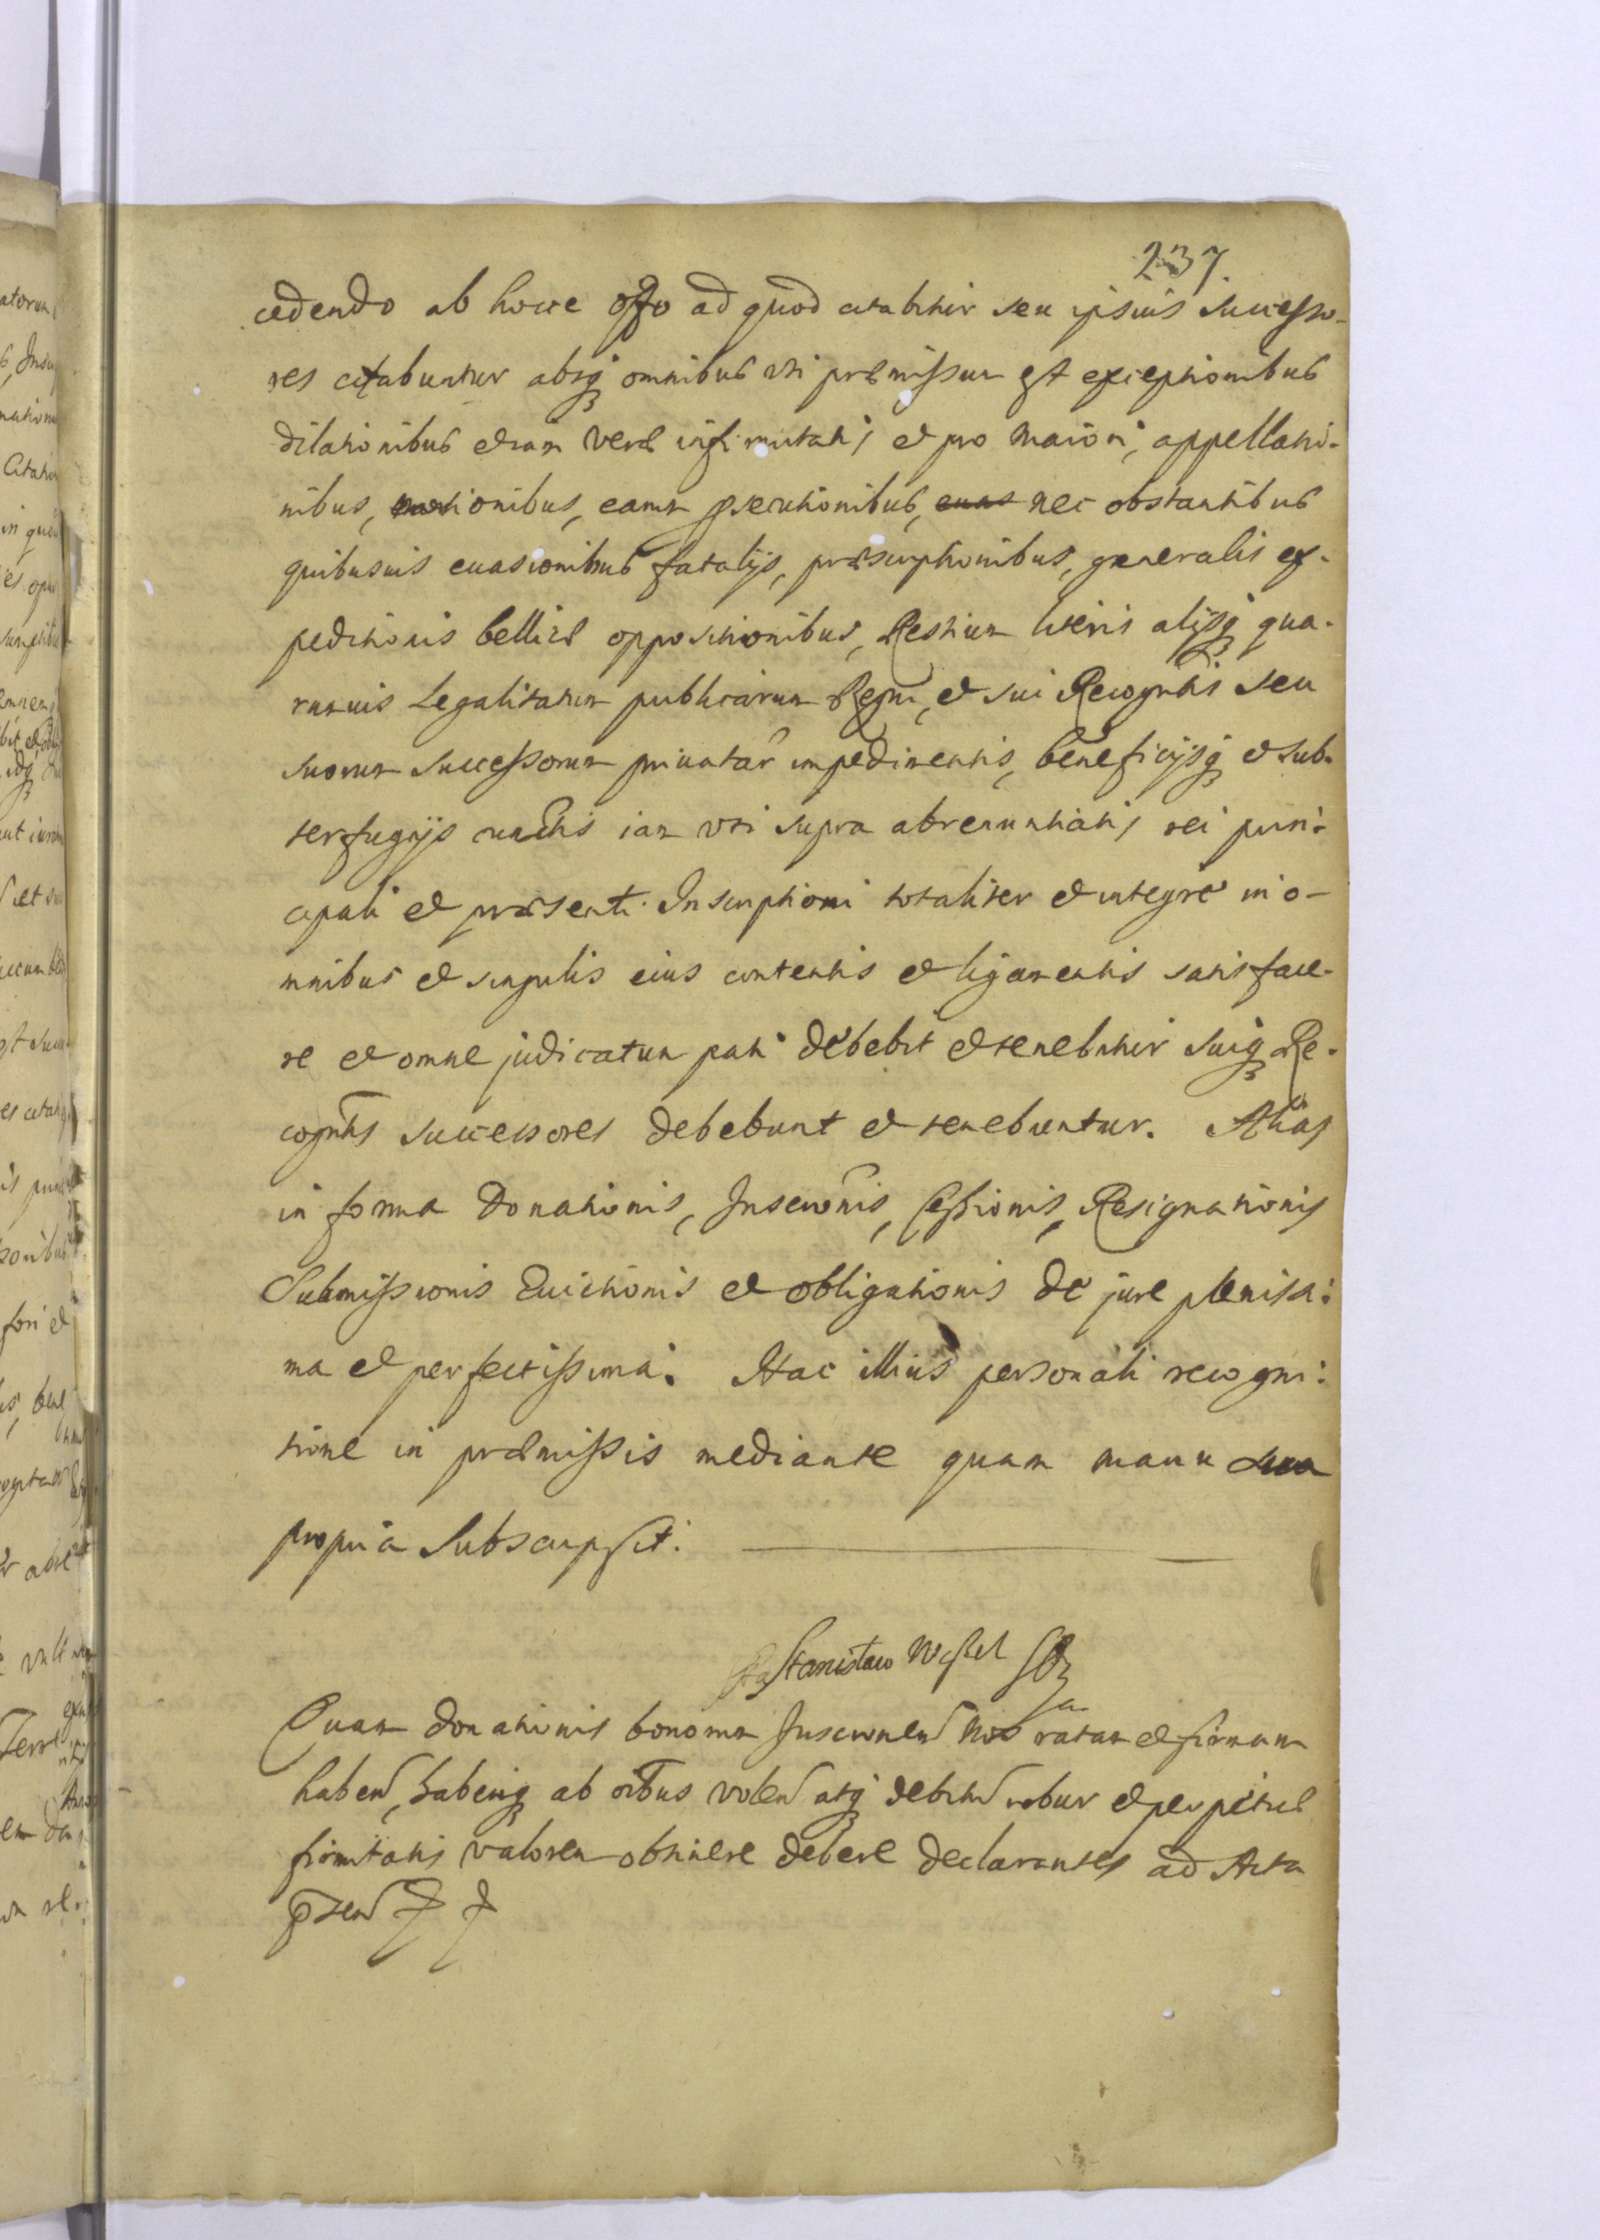 237.
cedendo ab hocce offo ad quod citabitur seu ipsius successo-
res citabuntur absq omnibus uti præmissum est exceptionibus
dilationibus etiam veræ infirmitatis et pro maiori, appellatio-
nibus, motionibus, earum psecutionibus, nec obstantibus
quibusuis euasionibus fatalijs, præscriptionibus, generalis ex-
peditionis bellicæ oppositionibus, Restium literis alijsq qua-
rumuis Legalitatum publicarum Regni, et sui Recogntis seu
suorum successorum priuatar impedimentis, beneficijsq et sub-
terfugijs cunctis iam uti supra abrenuntiatis, rei prin-
cipali et præsenti Inscriptioni totaliter et integre in o-
mnibus et singulis eius contentis et ligamentis satisface-
re et omne judicatum pati debebit et tenebitur suiq Re-
cogntis successores debebunt et tenebuntur. Alias
in forma Donationis, Inscronis, Cessionis, Resignationis
Submissionis Euictionis et obligationis de jure plenissi-
ma et perfectissima. Hac illius personali recogni-
tione in præmissis mediante quam manu sua
propria Subscripsit.
Stanisław Wessel
Quam donationis bonorum Inscronem nos ratam et firmam
haben, haberiq ab oibus volen atq debitu robur et perpetuæ
firmitatis valorem obtinere debere declarantes ad Acta